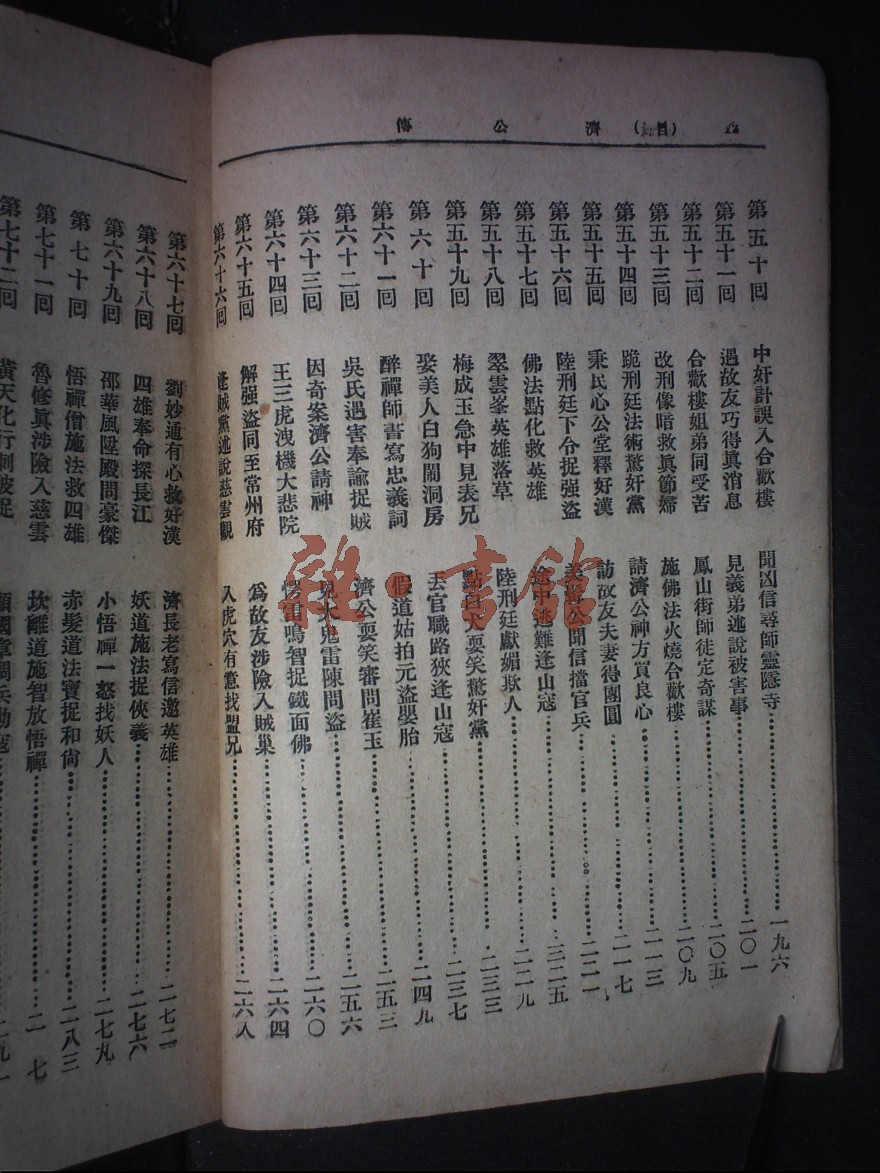 濟公傳
第五十回 中奸計誤入合歡樓 聞凶信尋師靈隱寺 一九六
第五十一回 遇故友巧得眞消息 見義弟述說被害事 二〇一
第五十二回 合歡樓姐弟同受苦 鳳山街師徒定奇謀 二〇五
第五十三回 改刑像暗救眞節婦 施佛法火燒合歡樓 二〇九
第五十四回 跪刑廷法術驚奸黨 請濟公神方買良心 二一三
第五十五回 秉民心公堂釋好漢 訪故友夫妻得團圓 二一七
第五十六回 陸刑廷下令捉强盜 美髯公聞信擋官兵 二二一
第五十七回 佛法點化救英雄 途中逃難逢山寇 三二五
第五十八回 翠雲峯英雄落草 陸刑廷獻媚欺人 二二九
第五十九回 梅成玉急中見表兄 點白犬耍笑驚奸黨 二三三
第六十回 娶美人白狗鬧洞房 丟官職路狹逢山寇 二三七
第六十一回 醉禪師書寫忠義詞 假道姑拍元盜嬰胎 二四九
第六十二回 吳氏遇害奉諭捉賊 濟公耍笑審問崔玉 二五三
第六十三回 因奇案濟公請神 見大鬼雷陳問盜 二五六
第六十四回 王三虎洩機大悲院 愣雷鳴智捉鐵面佛 二六〇
第六十五回 解强盜同至常州府 爲故友涉險入賊巢 二六四
第六十六回 逢賊黨述說慈雲觀 入虎穴有意找盟兄 二六八
第六十七回 劉妙通有心救好漢 濟長老寫信邀英雄 二七二
第六十八回 四雄奉命探長江 妖道施法捉俠義 二七六
第六十九回 邵華風陞殿問豪傑 小悟禪一怒找妖人 二七九
第七十回 悟禪僧施法救四雄 赤髮道法寶捉和尙 二八三
第七十一回 魯修眞涉險入慈雲 坎離道施智放悟禪 二 七
第七十二回 黃天化行刺被捉
雜·書館